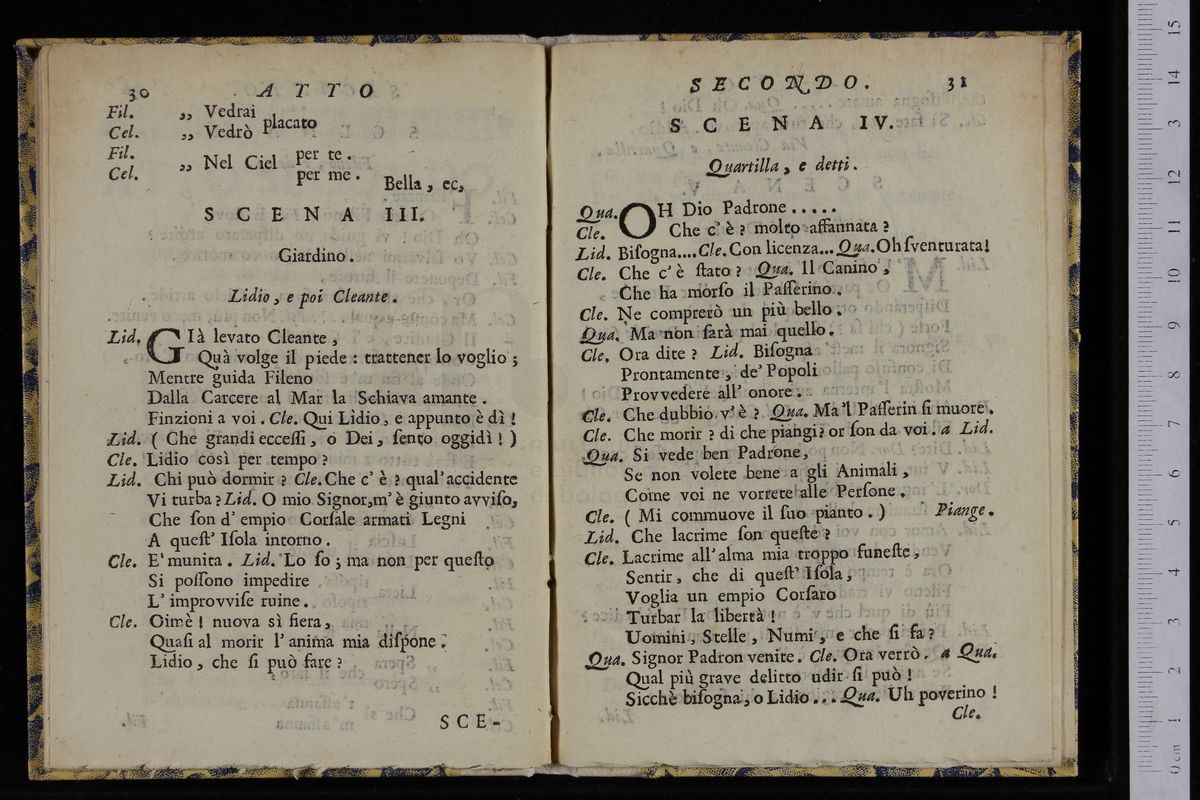 30 ATTO
Fil. ,, Vedrai
Cel. ,, Vedrò placato
Fil. ,, Nel Ciel per te.
Cel. per me. Bella, ec,
SCENA III.
Giardino.
Lidio, e poi Cleante.
Lid. GIà levato Cleante,
Quà volge il piede: trattener lo voglio;
Mentre guida Fileno
Dalla Carcere al Mar la Schiava amante.
Finzioni a voi. Cle. Qui Lidio, e appunto è dì!
Lid. ( Che grandi eccessi, o Dei, sento oggidì! )
Cle. Lidio così per tempo?
Lid. Chi può dormir? Cle. Che c'è? qual'accidente
Vi turba? Lid. O mio Signor, m'è giunto avviso,
Che son d'empio Corsale armati Legni
A quest'Isola intorno.
Cle. E' munita. Lid. Lo so; ma non per questo
Si possono impedire
L'improvvise ruine.
Cle. Oimè! nuova sì fiera,
Quasi al morir l'anima mia dispone;
Lidio, che si può fare?
SCE-
SECONDO. 31
SCENA IV.
Quartilla, e detti.
Qua. OH Dio Padrone.....
Cle. Che c'è? molto affannata?
Lid. Bisogna.... Cle. Con licenza... Qua. Oh sventurata!
Cle. Che c'è stato? Qua. Il Canino,
Che ha morso il Passerino.
Cle. Ne comprerò un più bello.
Qua. Ma non sarà mai quello.
Cle. Ora dite? Lid. Bisogna
Prontamente, de' Popoli
Provvedere all'onore.
Cle. Che dubbio v'è? Qua. Ma'l Passerin si muore.
Cle. Che morir? di che piangi? or son da voi. a Lid.
Qua. Si vede ben Padrone,
Se non volete bene a gli Animali,
Come voi ne vorrete alle Persone.
Cle. ( Mi commuove il suo pianto. ) Piange.
Lid. Che lacrime son queste?
Cle. Lacrime all'alma mia troppo funeste,
Sentir, che di quest'Isola,
Voglia un empio Corsaro
Turbar la libertà!
Uomini, Stelle, Numi, e che si fa?
Qua. Signor Padron venite. Cle. Ora verrò. a Qua.
Qual più grave delitto udir si può!
Sicchè bisogna, o Lidio... Qua. Uh poverino!
Cle.